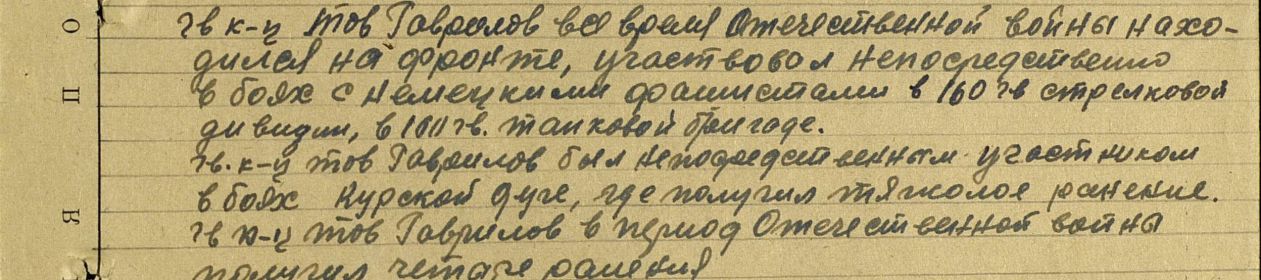 гв к-ц тов Гаврилов все время Отечественной войны нахо-
дился на фронте, участвовал непосредственно
в боях с немецкими фашистами в 160 гв стрелковой
дивизии, в 111 гв. танковой бригаде.
гв. к-ц тов Гаврилов был непосредственным участником
в боях Курской дуге, где получил тяжолое ранение.
гв к-ц тов Гаврилов в период Отечественной войны
получил четыре ранения
О
П
Я